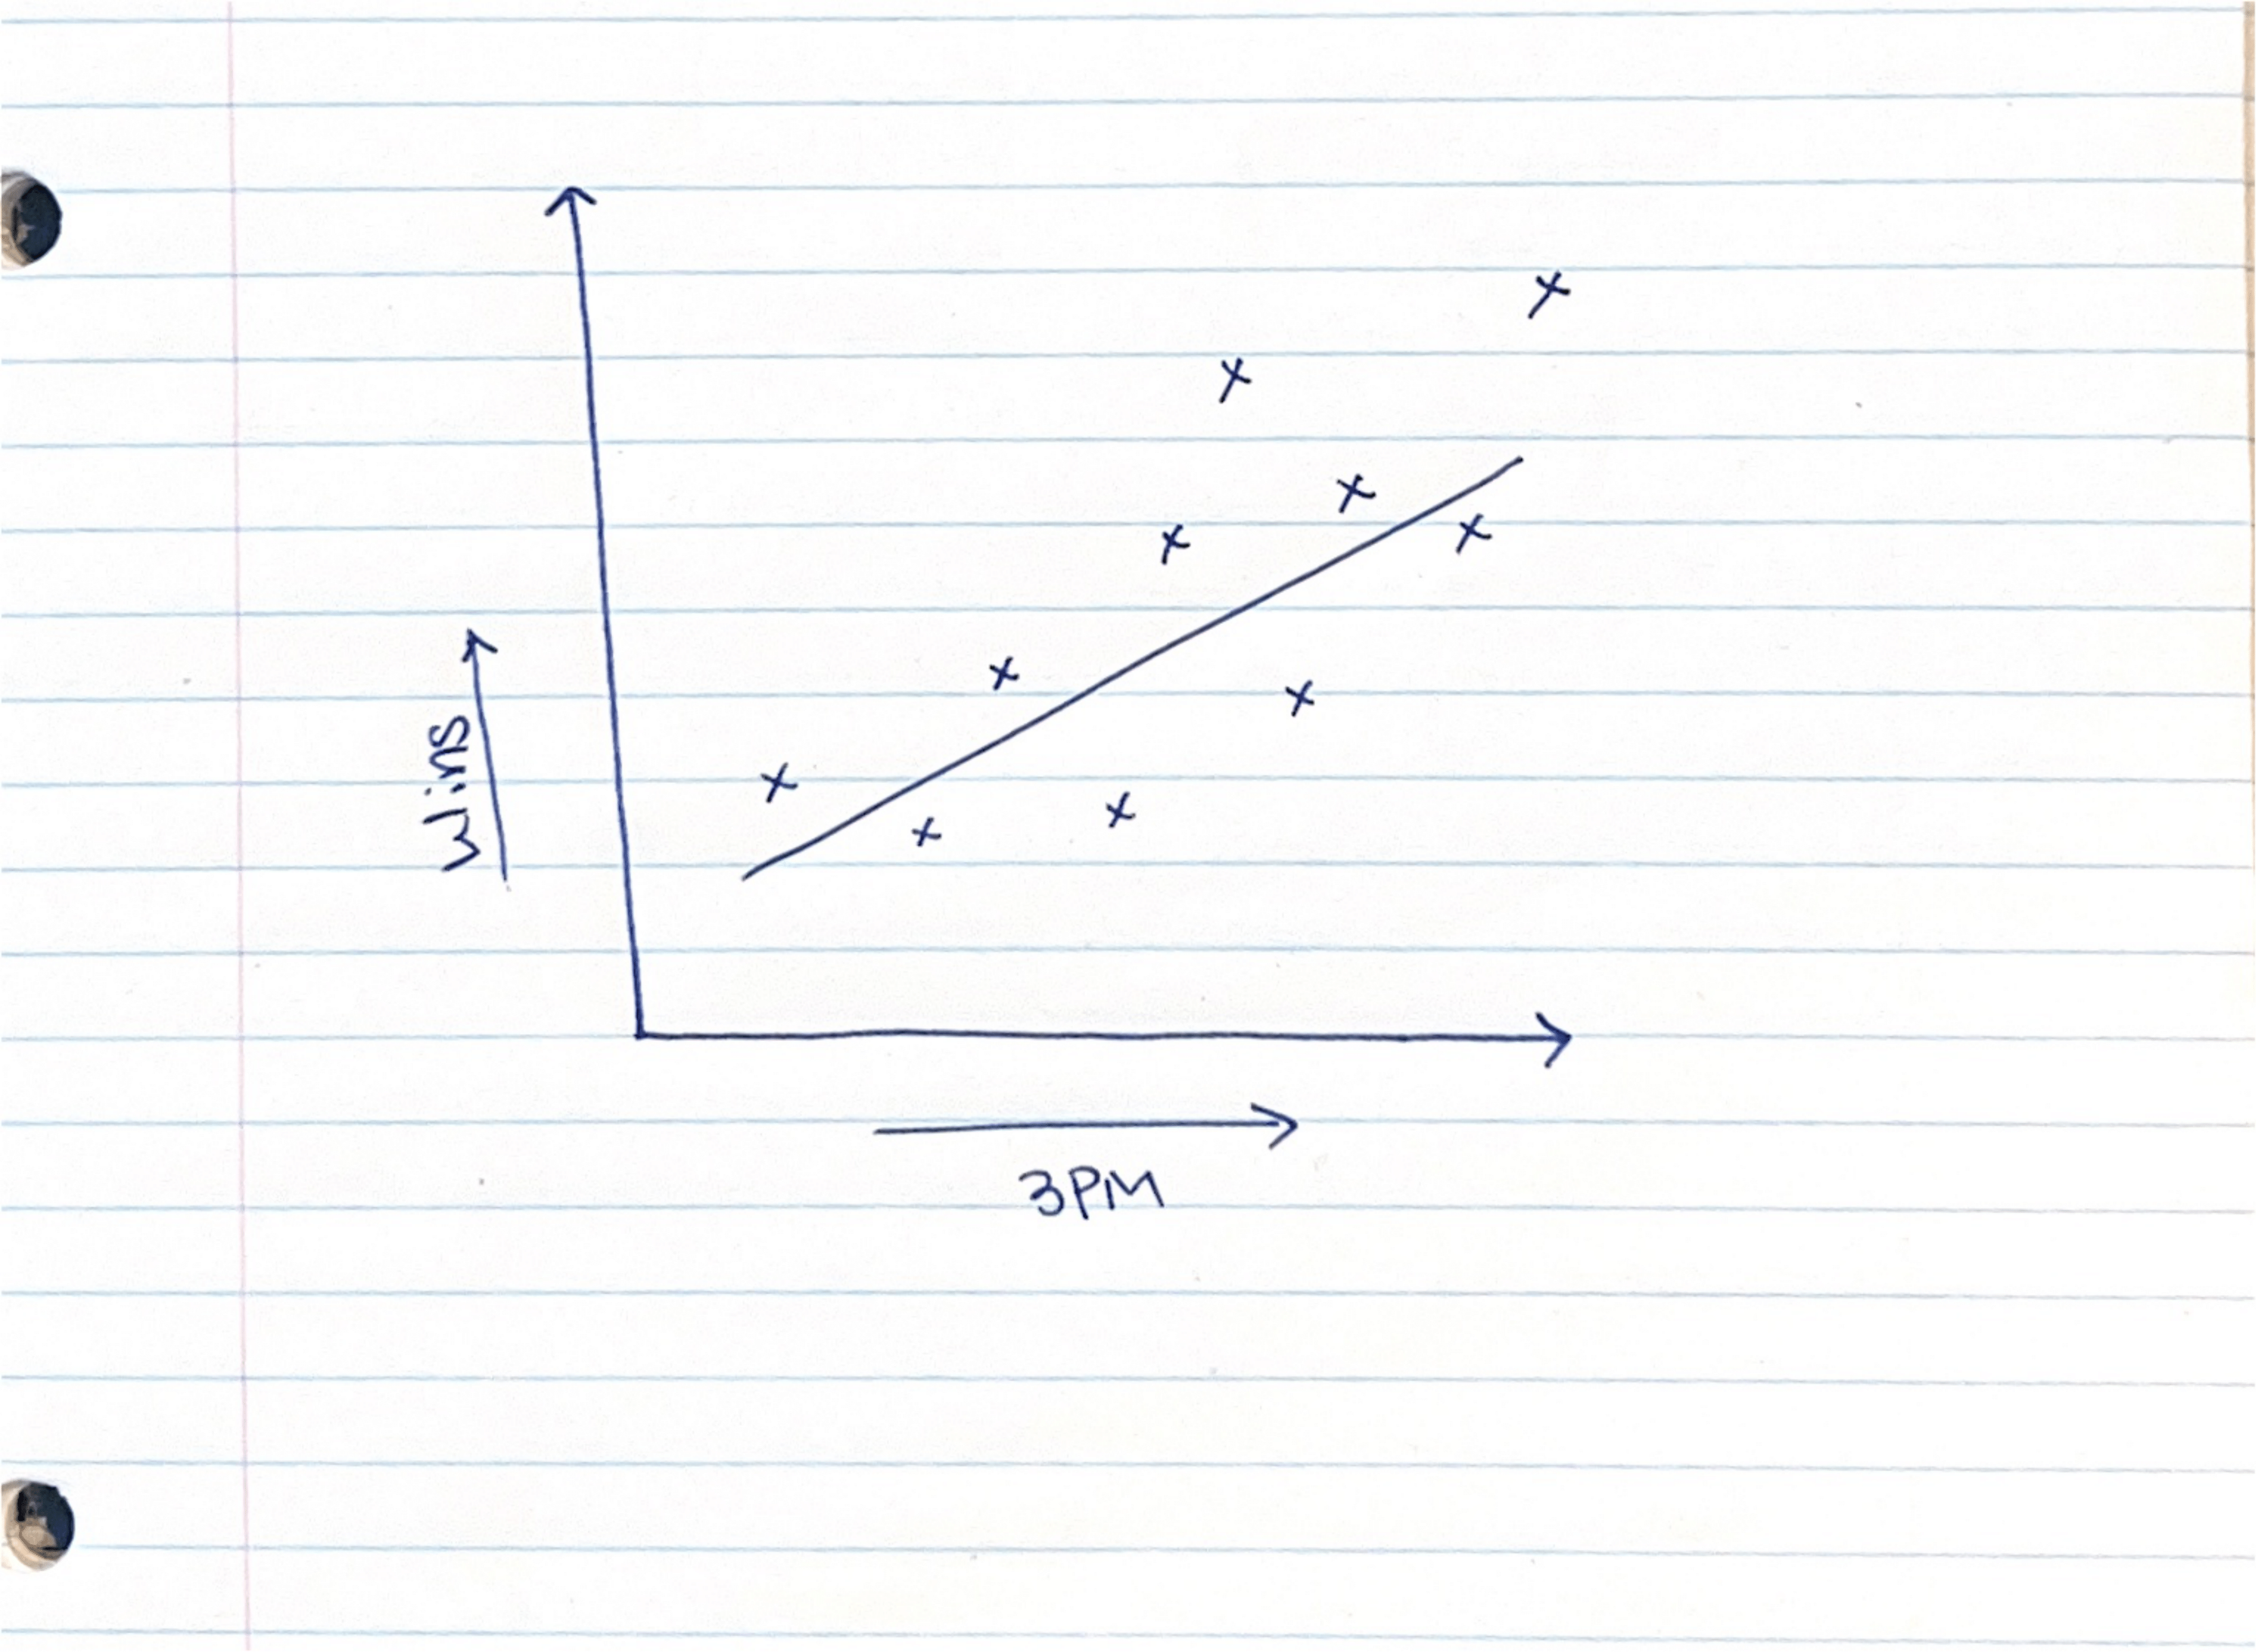 wins
3PM